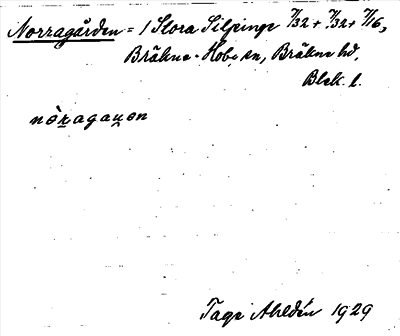 Norragården = 1 Stora Silpinge 7/32 + 7/32 + 7/16,
Bräkne-Hoby sn, Bräkne hd,
Blek. l.
nòragaṇen
Tage Ahldén 1929